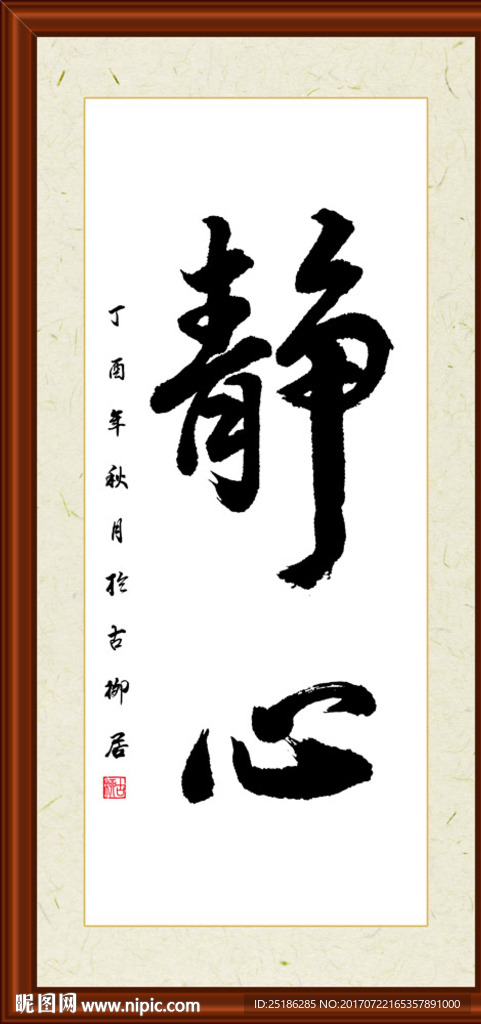 静心
丁酉年秋月於古柳居
昵图网 www.nipic.com
ID:25186285 NO:20170722165357891000